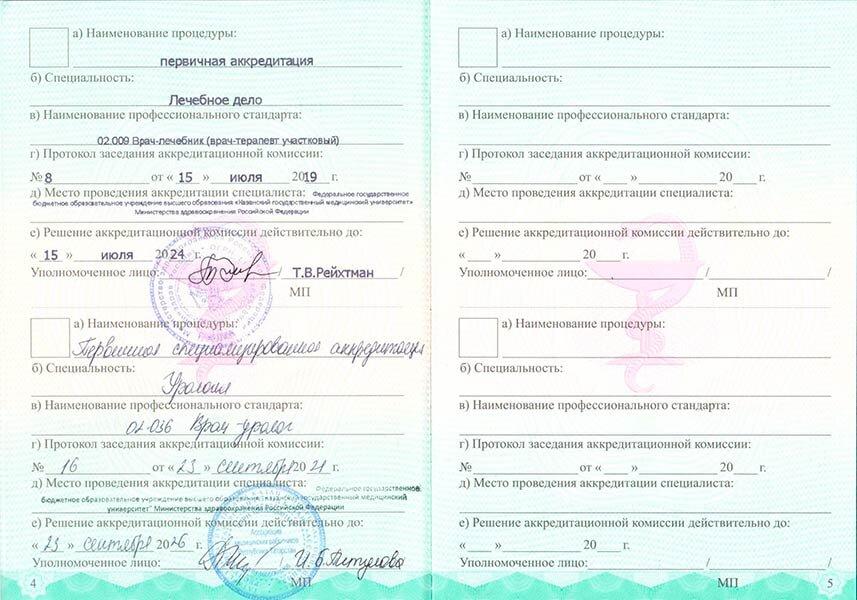 а) Наименование процедуры:
первичная аккредитация
б) Специальность:
Лечебное дело
в) Наименование профессионального стандарта:
02.009 Врач-лечебник (врач-терапевт участковый)
г) Протокол заседания аккредитационной комиссии:
№ 8 от « 15 » июля 2019 г.
д) Место проведения аккредитации специалиста: Федеральное государственное
бюджетное образовательное учреждение высшего образования «Казанский государственный медицинский университет»
Министерства здравоохранения Российской Федерации
е) Решение аккредитационной комиссии действительно до:
« 15 » июля 2024 г.
Уполномоченное лицо: / Т.В.Рейхтман /
МП
а) Наименование процедуры:
Первичная специализированная аккредитация
б) Специальность:
Урология
в) Наименование профессионального стандарта:
02.036 Врач-уролог
г) Протокол заседания аккредитационной комиссии:
№ 16 от « 23 » сентября 2021 г.
д) Место проведения аккредитации специалиста: Федеральное государственное
бюджетное образовательное учреждение высшего образования "Казанский государственный медицинский
университет" Министерства здравоохранения Российской Федерации
е) Решение аккредитационной комиссии действительно до:
« 23 » сентября 2026 г.
Уполномоченное лицо:
МП
4
а) Наименование процедуры:
б) Специальность:
в) Наименование профессионального стандарта:
г) Протокол заседания аккредитационной комиссии:
№ от « » 20 г.
д) Место проведения аккредитации специалиста:
е) Решение аккредитационной комиссии действительно до:
« » 20 г.
Уполномоченное лицо: / /
МП
а) Наименование процедуры:
б) Специальность:
в) Наименование профессионального стандарта:
г) Протокол заседания аккредитационной комиссии:
№ от « » 20 г.
д) Место проведения аккредитации специалиста:
е) Решение аккредитационной комиссии действительно до:
« » 20 г.
Уполномоченное лицо: / /
МП
5